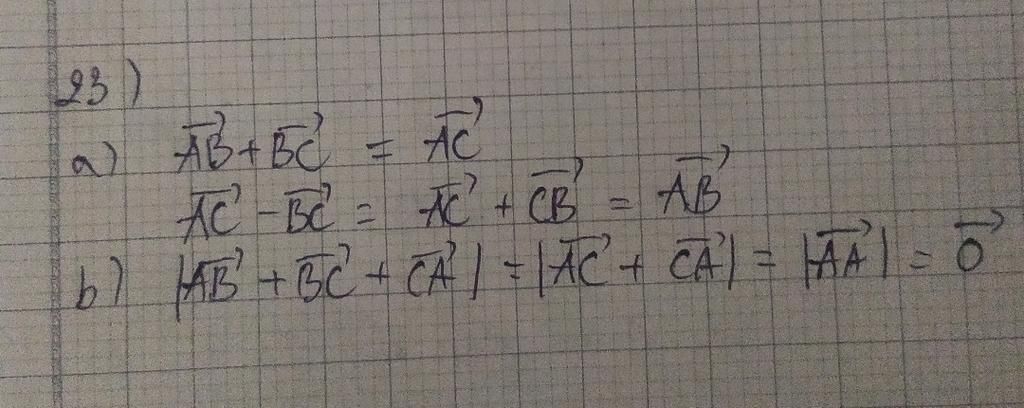 23)
a) $\overrightarrow{AB} + \overrightarrow{BC} = \overrightarrow{AC}$
$\overrightarrow{AC} - \overrightarrow{BC} = \overrightarrow{AC} + \overrightarrow{CB} = \overrightarrow{AB}$
b) $|\overrightarrow{AB} + \overrightarrow{BC} + \overrightarrow{CA}| = |\overrightarrow{AC} + \overrightarrow{CA}| = |\overrightarrow{AA}| = \overrightarrow{0}$